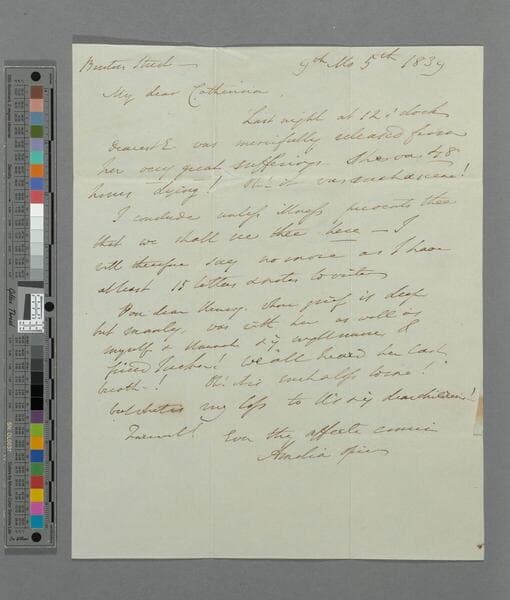 9th Mo 5th 1839
My dear Catherine
Last night at 12 o'clock
dearest E. was mercifully released from
her very great sufferings. She was 48
hours dying! Oh! it was such a scene!
I conclude unless illness prevents thee
that we shall see thee here — I
will therefore say no more as I have
at least 15 letters & notes to write
Poor dear Henry, whose grief is deep
but manly, was with her as well as
myself &
! We all heard her last
breath —! Oh!
my loss to his dear children!
Farewell! Ever thy affecte cousin
Amelia Opie